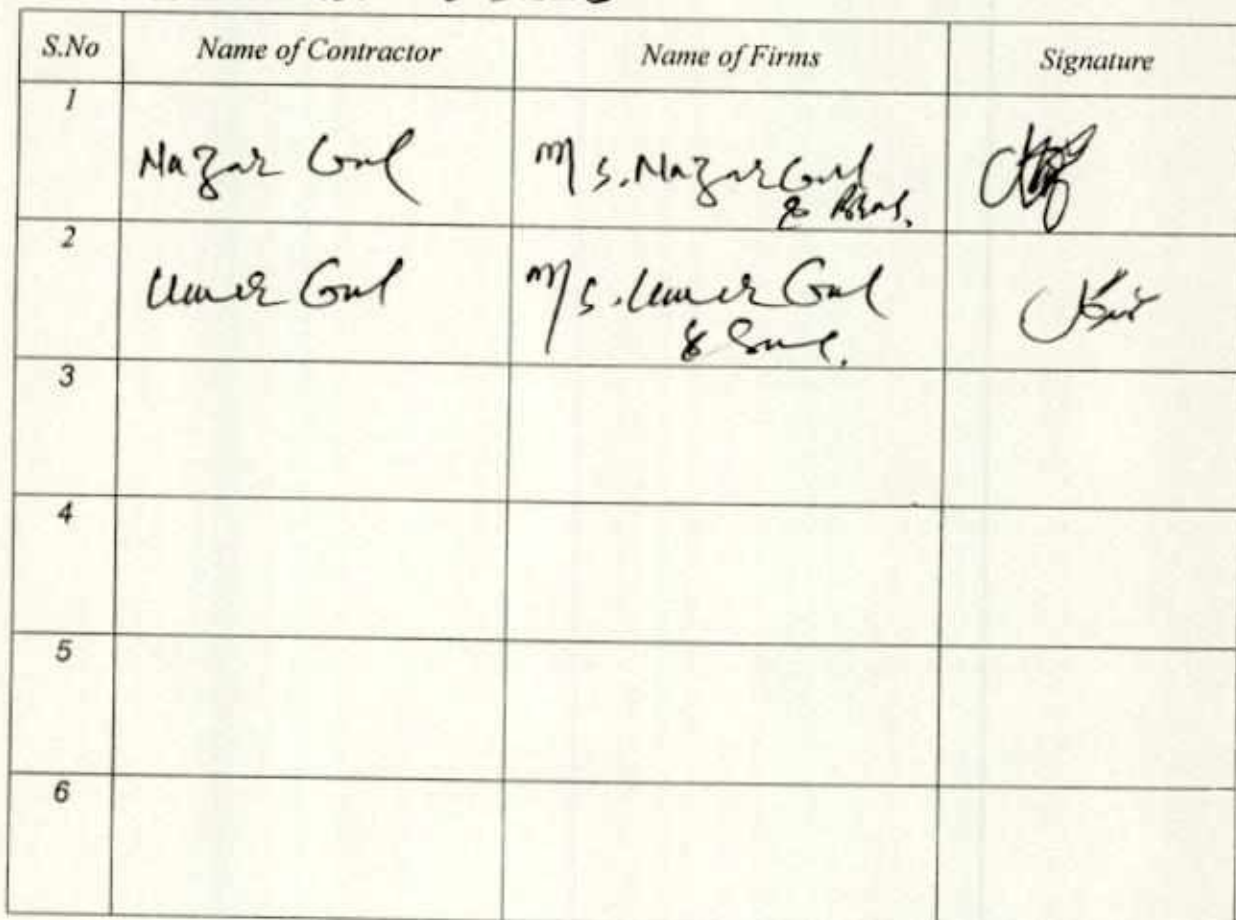 S.No Name of Contractor Name of Firms Signature
1
Nazar Gul M/S. Nazar Gul
& Bros.
2
Umer Gul M/S. Umer Gul
& Sons.
3
4
5
6